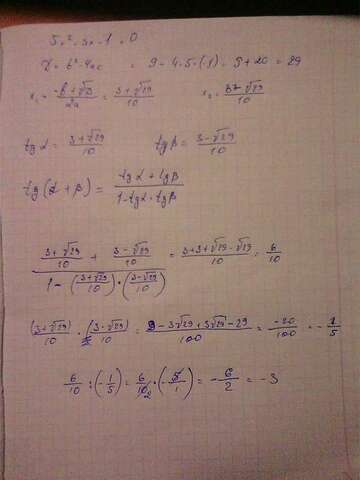 5x² - 3x - 1 = 0
D = b² - 4ac = 9 - 4·5·(-1) = 9 + 20 = 29
x₁ = (-b + √D)/2a = (3 + √29)/10  x₂ = (3 - √29)/10
tg α = (3 + √29)/10  tg β = (3 - √29)/10
tg(α + β) = (tg α + tg β)/(1 - tg α · tg β)
((3 + √29)/10 + (3 - √29)/10)/(1 - ((3 + √29)/10)·((3 - √29)/10)) = (3 + 3 + √29 - √29)/10 = 6/10
(3 + √29)/10 · (3 - √29)/10 = (9 - 3√29 + 3√29 - 29)/100 = -20/100 = -1/5
6/10 : (-1/5) = 6/10 · (-5/1) = -6/2 = -3